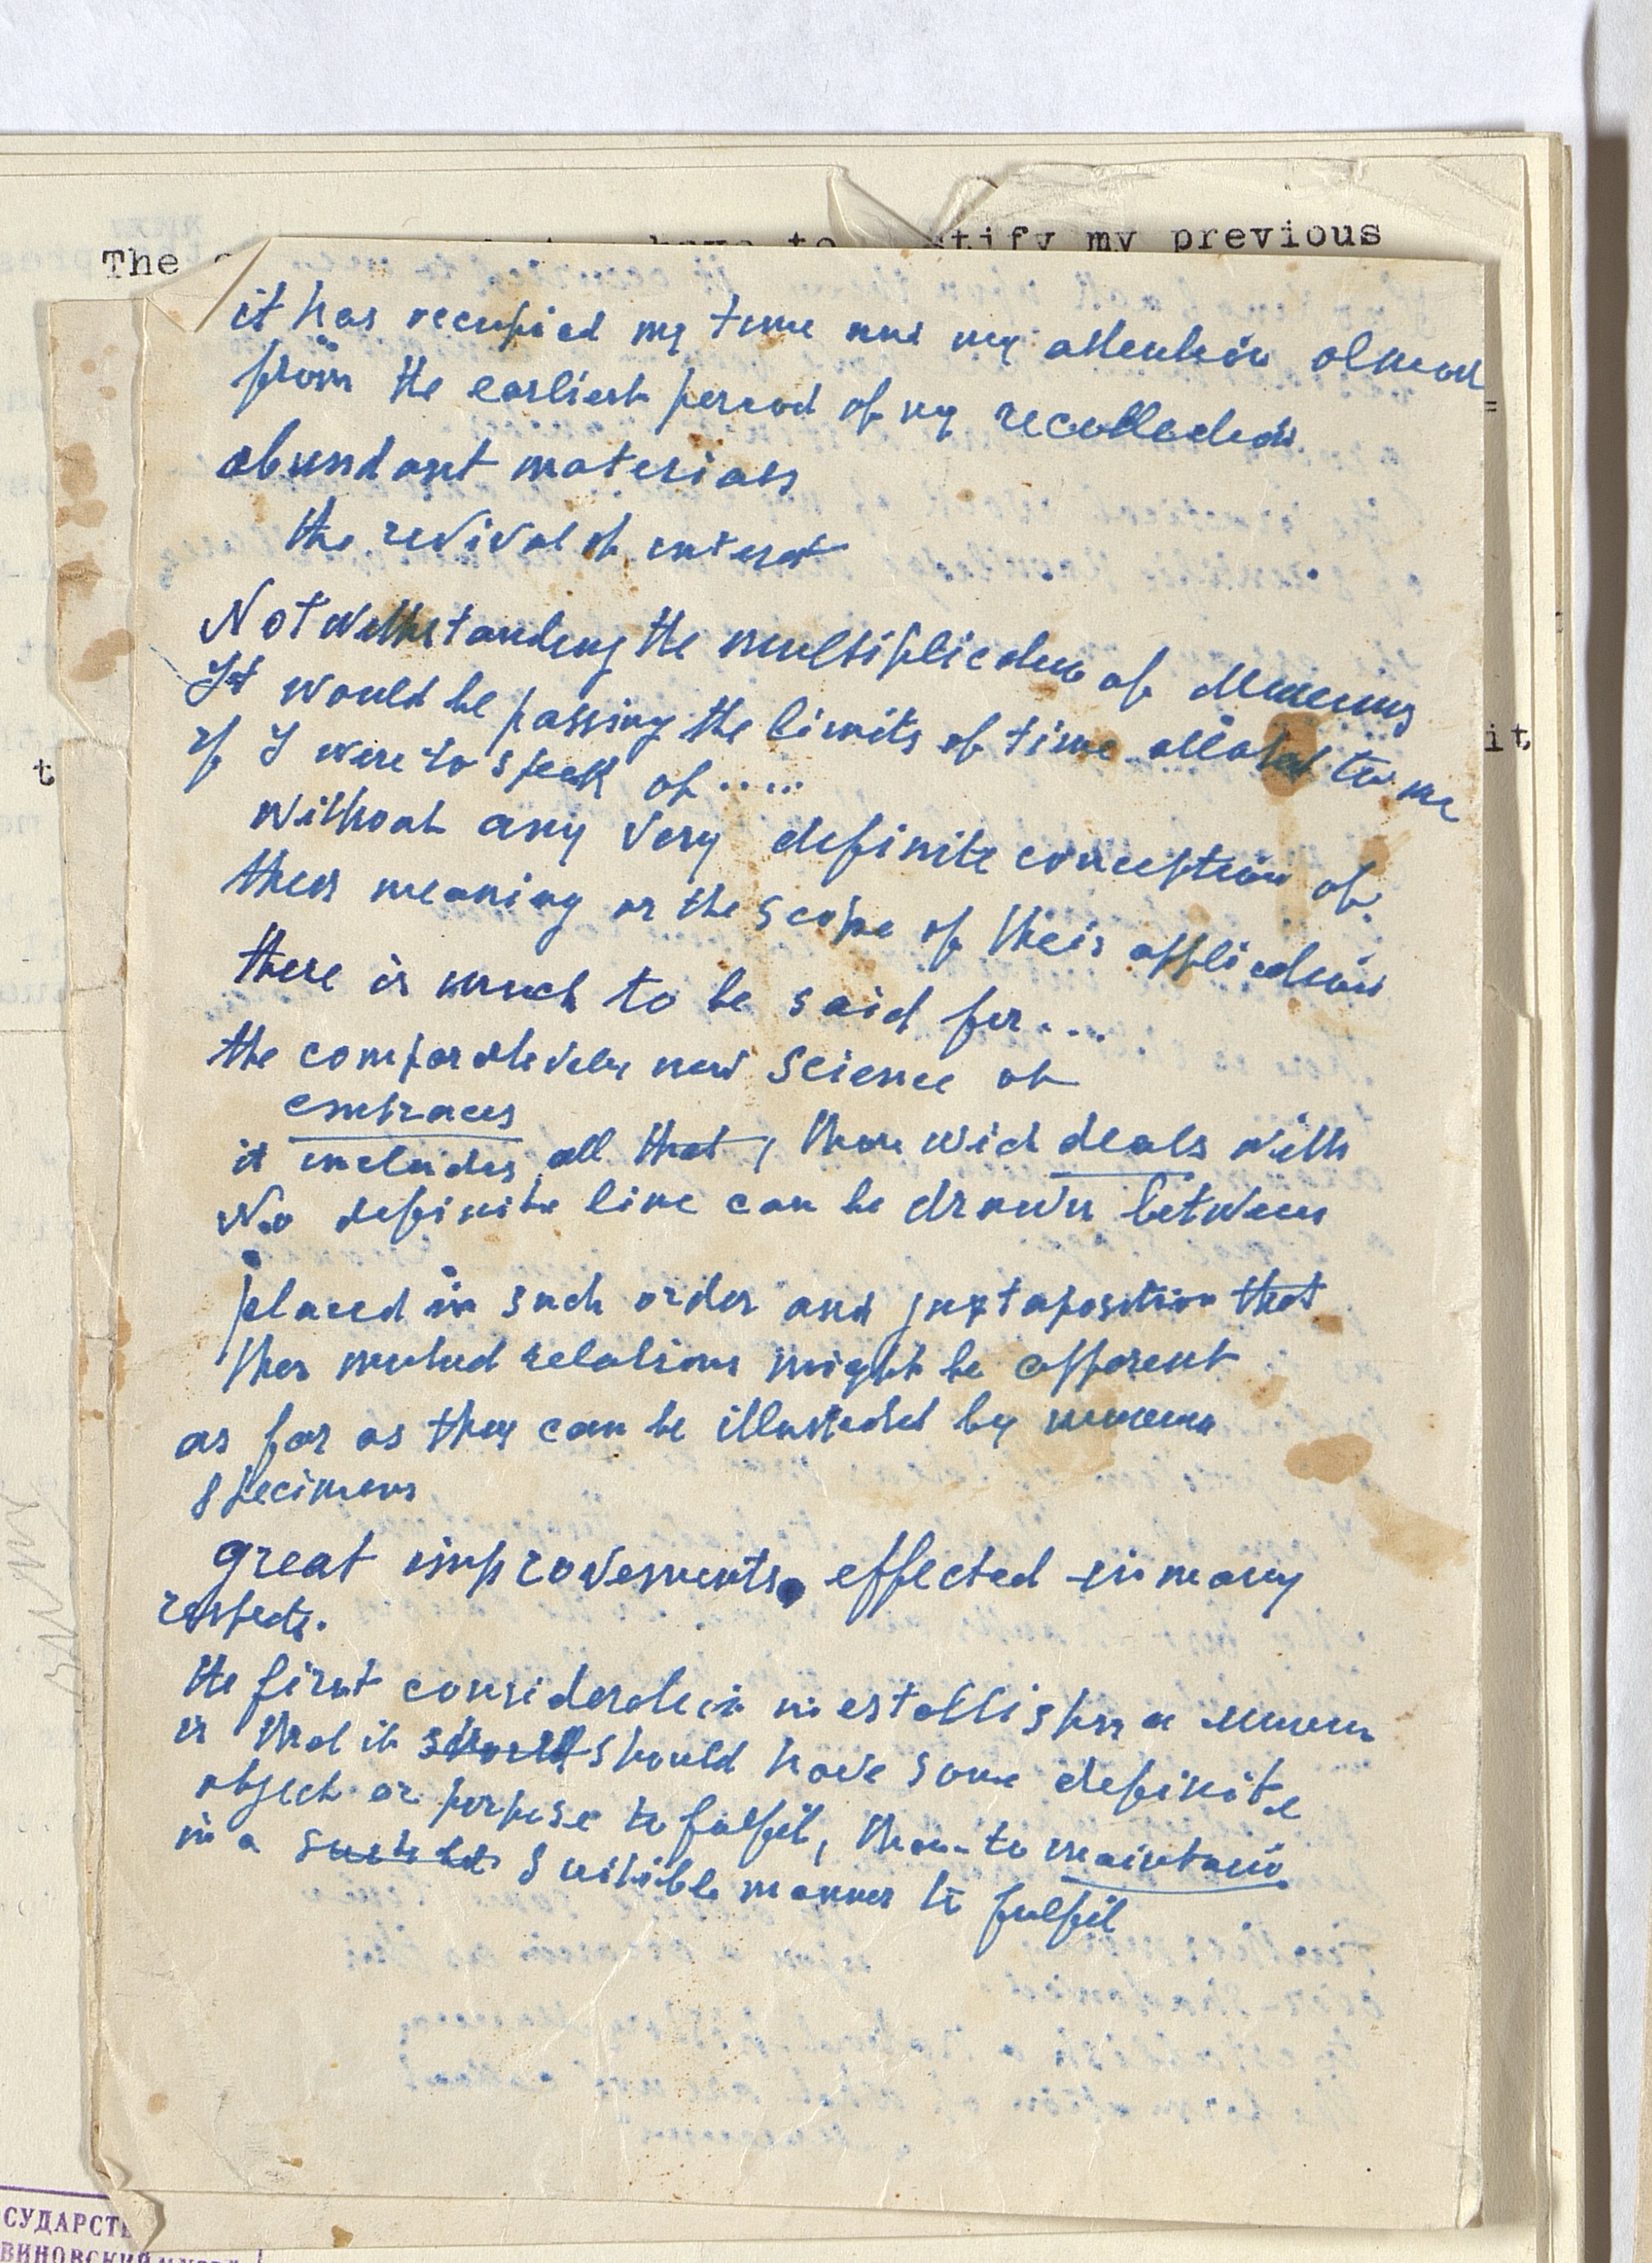 The to stify my previous
it has occupied my time and my attention almost
from the earliest period of my recollection.
abundant materials
the revival of interest
Notwithstanding the multiplication of Museums
It would be passing the limits of time allotted to me
if I were to speak of.....
without any very definite conception of
their meaning or the scope of their application
there is much to be said for....
the comparatively new science of
embraces
it includes all that, than wich deals with
No definite line can be drawn between
placed in such order and juxtaposition that
ther mutual relations might be apparent
as far as they can be illustrated by museum
specimens
great improvements effected in many
respects.
the first consideration in establishing a museum
is that it should should have some definite
object or perpose to fulfil, than to maintain
in a suitable manner to fulfil
t
it
СУДАРСТ
ВИНОВСКИЙ